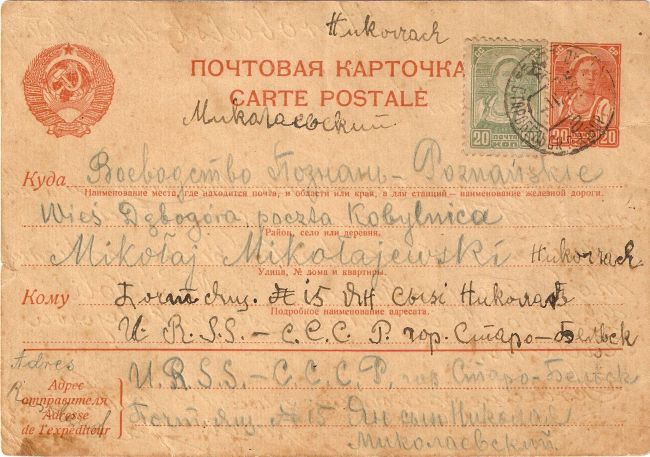 Николай
ПОЧТОВАЯ КАРТОЧКА
CARTE POSTALE
Миколаевский
20 ПОЧТА КОП. 20
20 20
Куда Воеводство Познань-Познайские
Наименование места, где находится почта, и области или края, а для станций — наименование железной дороги.
Wieś Dębogóra poczta Kobylnica
Район, село или деревня.
Mikołaj Mikołajewski
Улица, № дома и квартиры.
Кому Почт Ящ. № 15 Ян Сын
Подробное наименование адресата.
U. R. S. S. – С. С. С. Р. гор. Старо-Бельск
Adres
Адрес отправителя
Adresse de l'expéditeur
U. R. S. S. – С. С. С. Р. гор. Старо-Бельск
Почт. ящ № 15 Ян сын Николая
Миколаевский